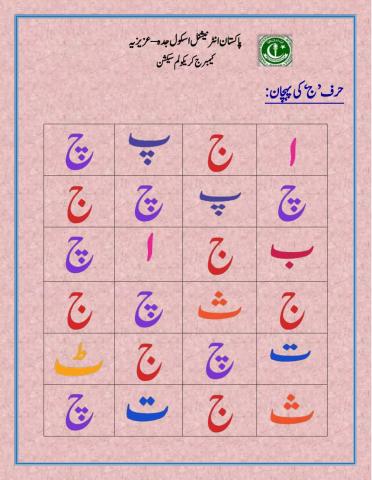 پاکستان انٹرنیشنل اسکول جدہ – عزیزیہ
کیمبرج کریکولم سیکشن
حرف ’ج‘ کی پہچان:
ا ج پ چ
چ پ چ ج
ب ج ا چ
ج ث چ ج
ت چ ج ٹ
ث ج ت چ